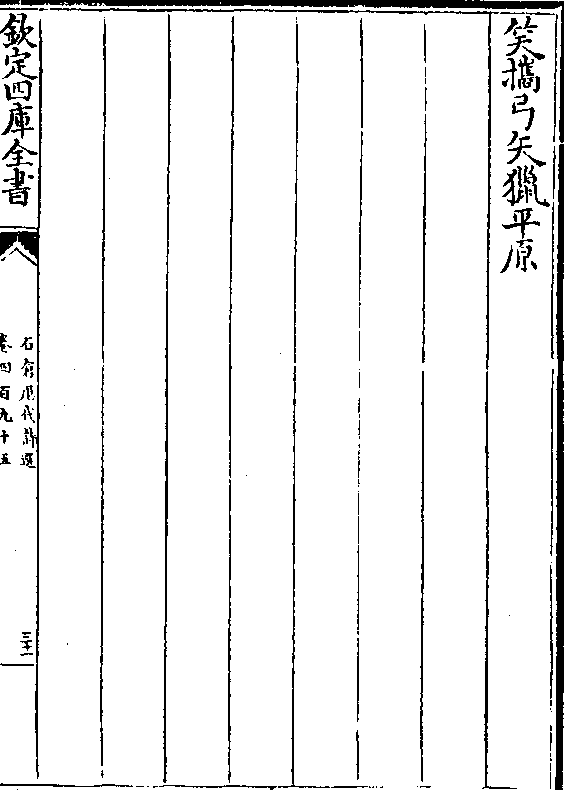 笑攜弓矢獵平原
欽定四庫全書
石倉歷代詩選
卷四百九十五
三十一